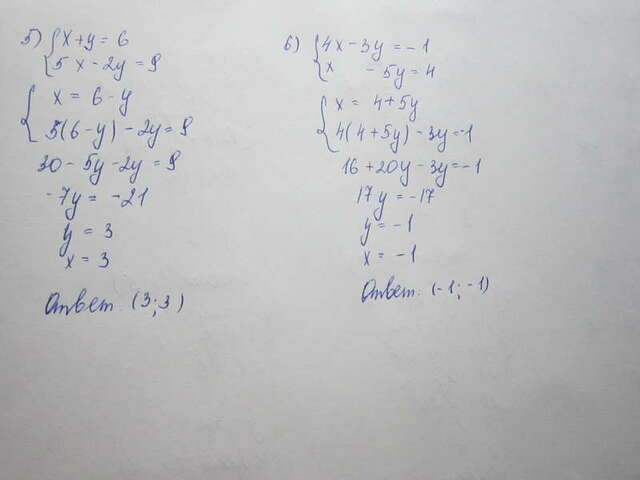 5) { x + y = 6
5x - 2y = 9
{ x = 6 - y
5(6-y) - 2y = 9
30 - 5y - 2y = 9
-7y = -21
y = 3
x = 3
Ответ. (3;3)
6) { 4x - 3y = -1
x - 5y = 4
{ x = 4+5y
4(4+5y) - 3y=-1
16+20y-3y=-1
17y = -17
y = -1
x = -1
Ответ. (-1;-1)